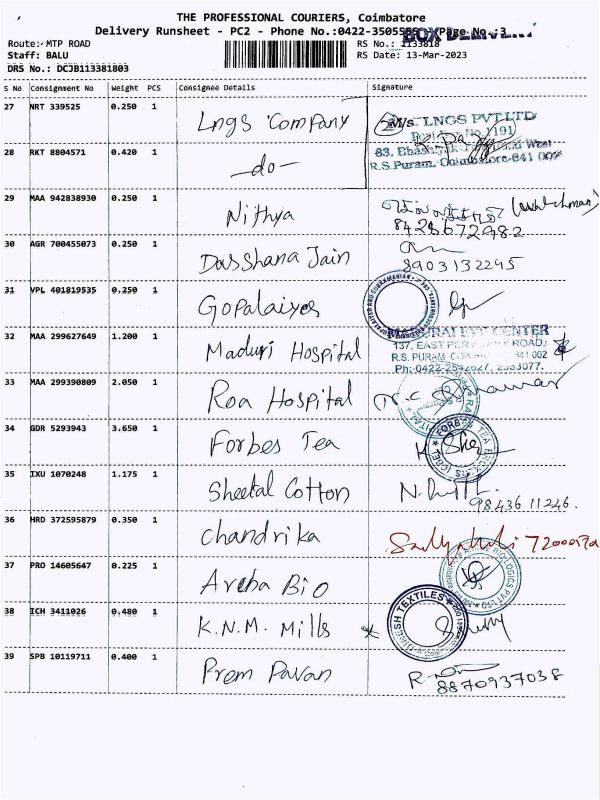 THE PROFESSIONAL COURIERS, Coimbatore
Delivery Runsheet - PC2 - Phone No.:0422-3505555 /Page No. 3
BOX DELIVERY
Route: MTP ROAD
RS No.: 1133818
Staff: BALU
RS Date: 13-Mar-2023
DRS No.: DCJB113381803
S No Consignment No Weight PCS Consignee Details Signature
27 NRT 339525 0.250 1 Lngs Company
M/s. LNGS PVT LTD
28 RKT 8804571 0.420 1 -do-
R.S.Puram, Coimbatore-641 002
29 MAA 942838930 0.250 1 Nithya (watchman)
8428672982
30 AGR 700455073 0.250 1 Dasshana Jain
8903132245
31 VPL 401819535 0.250 1 Gopalaiyes
32 MAA 299627649 1.200 1 Maduri Hospital
EYE CENTER
137, EAST PERIASAMY ROAD,
R.S. PURAM, 641 002
Ph: 0422-2542627,
33 MAA 299390809 2.050 1 Roa Hospital
34 GDR 5293943 3.650 1 Forbes Tea
FORBES TEA
35 IXU 1070248 1.175 1 Sheetal Cotton
98436 11246.
36 HRD 372595879 0.350 1 Chandrika
37 PRO 14605647 0.225 1 Areba Bio
38 ICH 3411026 0.480 1 K.N.M. Mills
TEXTILES
39 SPB 10119711 0.400 1 Prem Pavan
8870937038